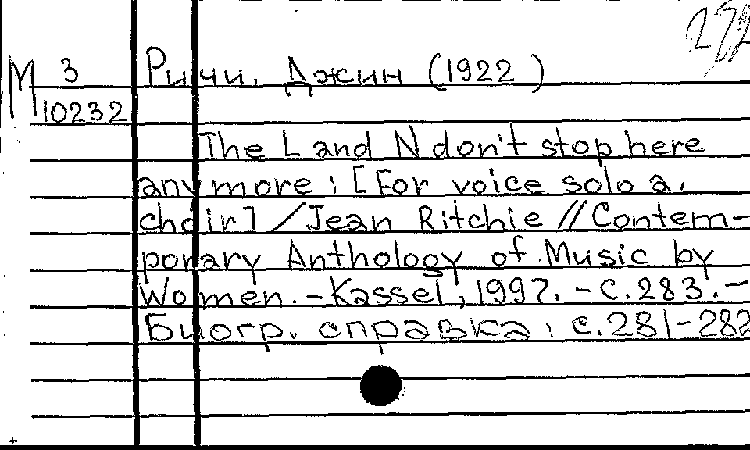 272
М 3 Ричи, Джин (1922 )
10232
The L and N don't stop here
any more : [For voice solo a.
choir] / Jean Ritchie // Contem-
porary Anthology of Music by
Women. - Kassel, 1997. - С.283. -
Биогр. справка : с.281-282